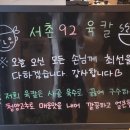 서촌92육칼
※ 오늘 오신 모든 손님께 최선을
다하겠습니다 감사합니다
저희 육칼은 사골 육수로 끓여
청양고추로 매운맛을 내어 깔끔하고 얼큰